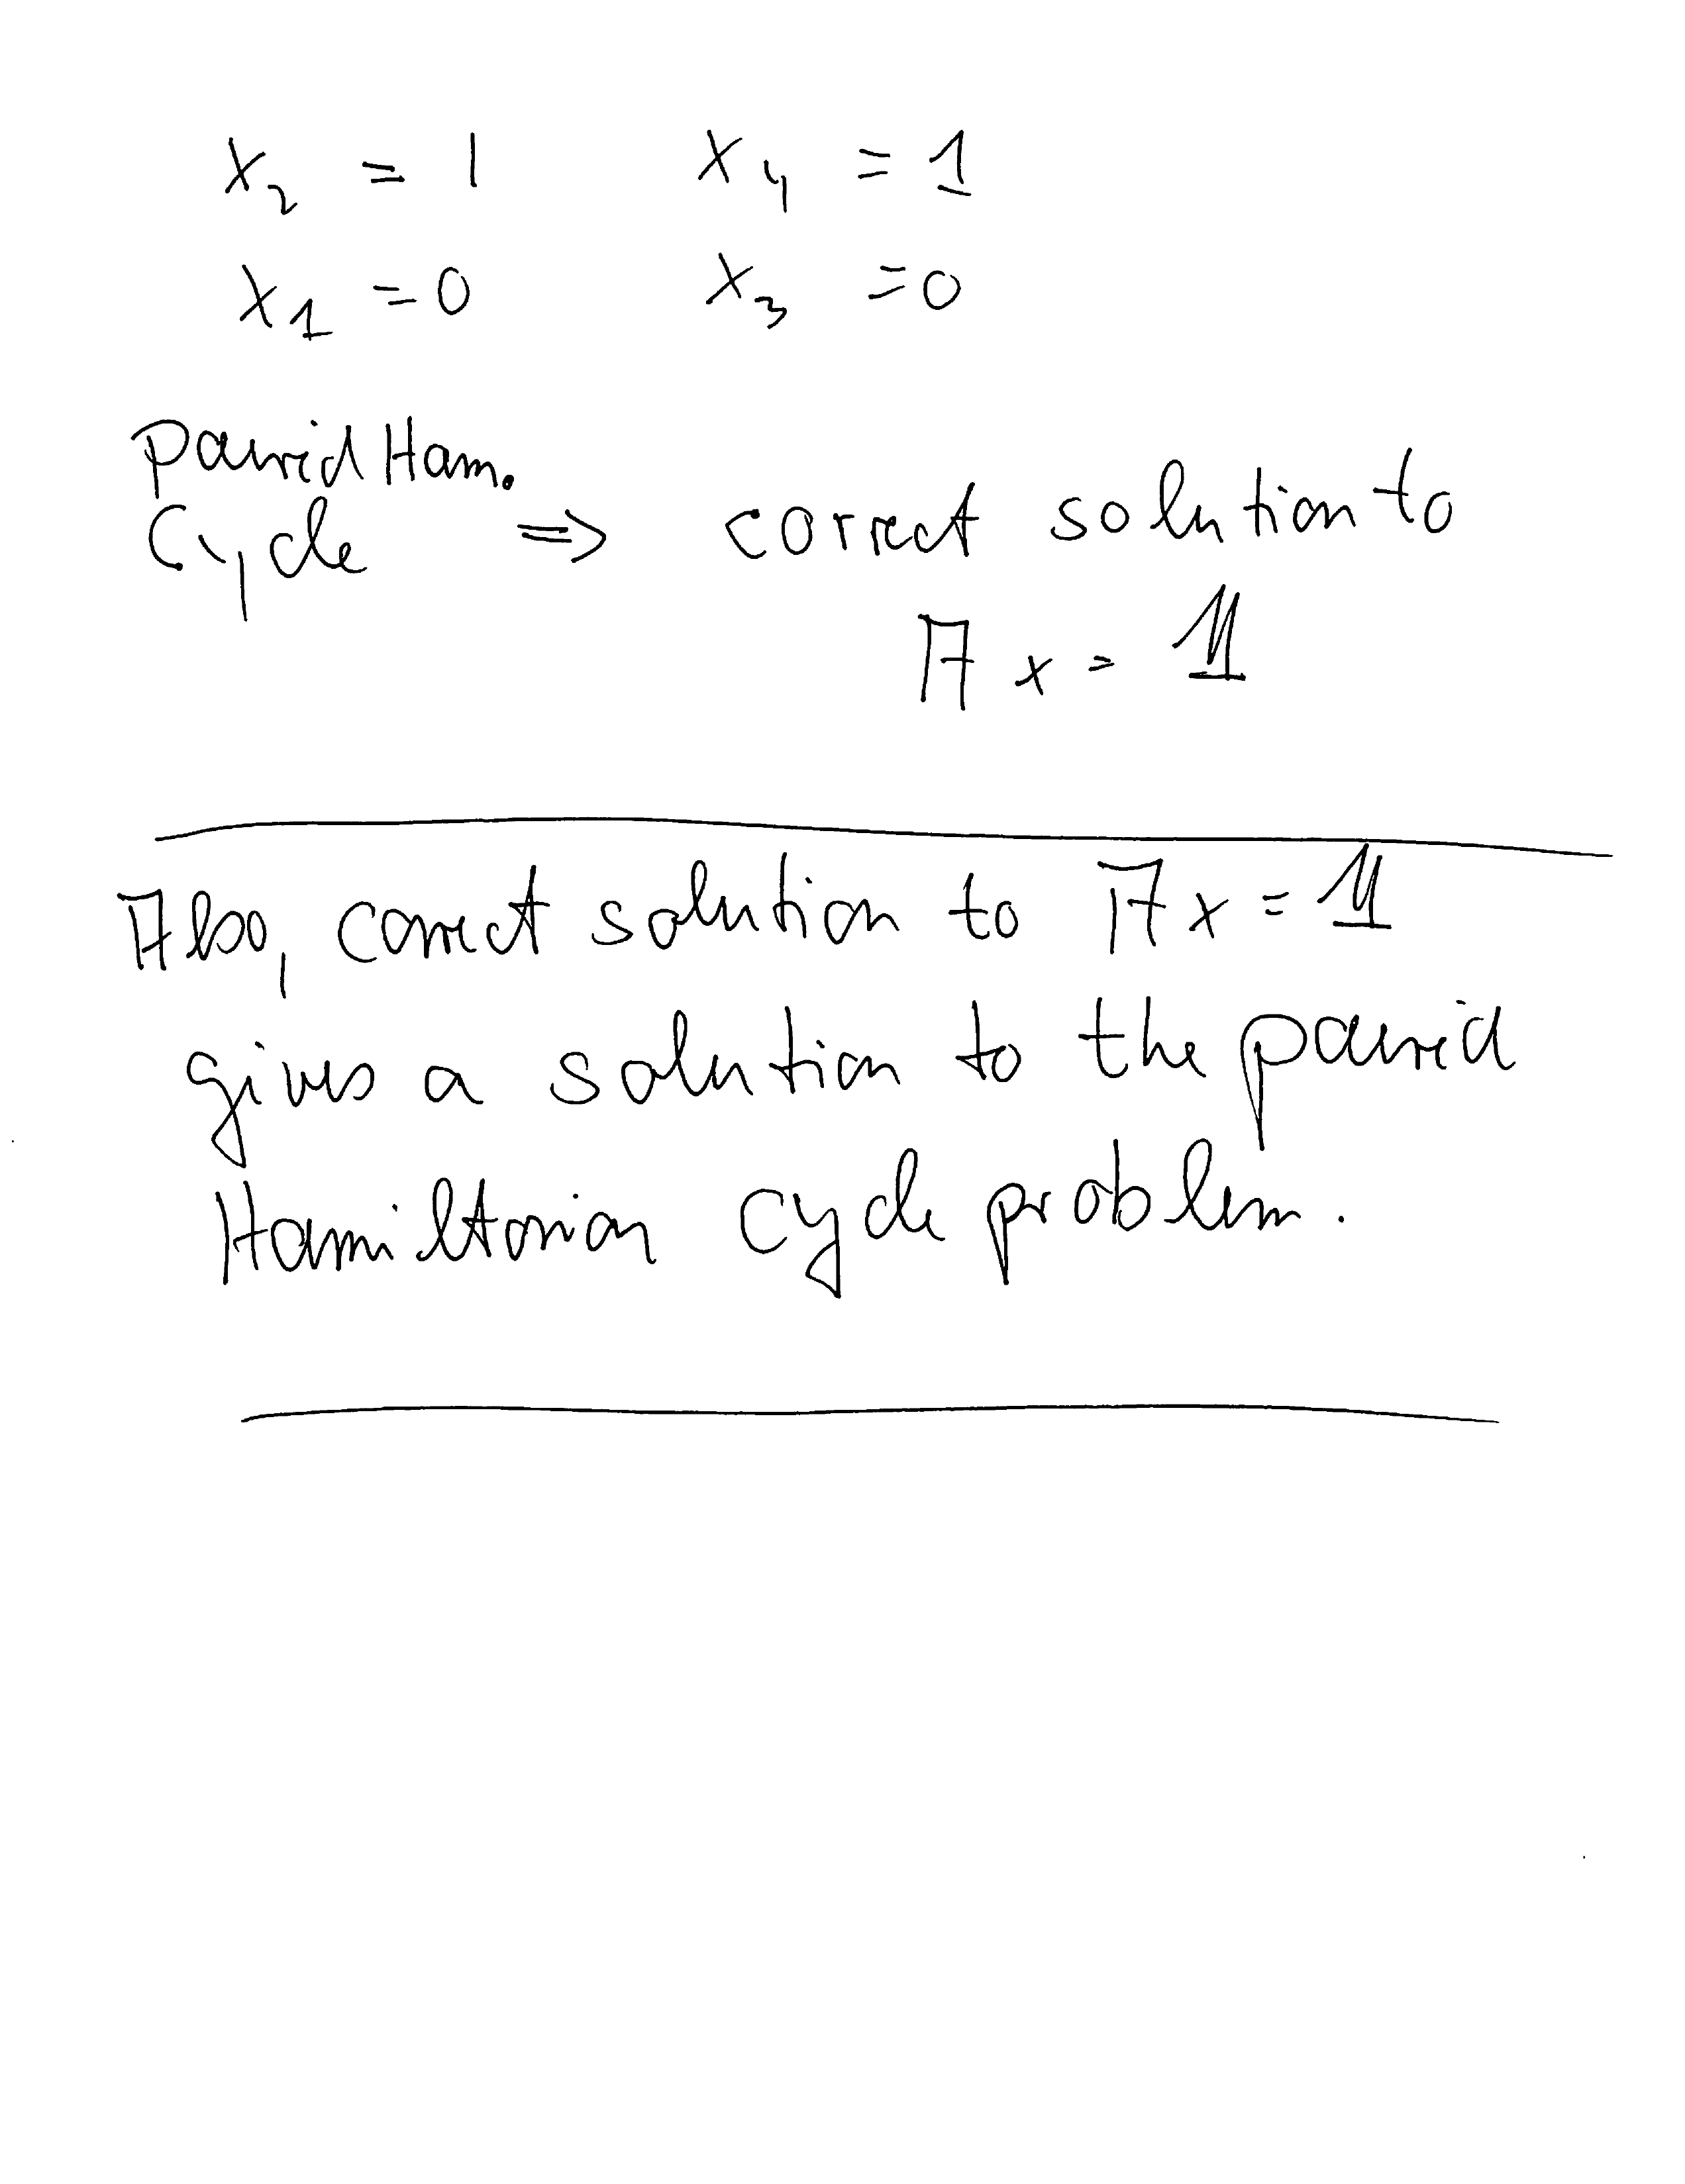 x₂ = 1 x₄ = 1
x₁ = 0 x₃ = 0
paired Ham.
Cycle ⇒ correct solution to
A x = 𝟙
Also, correct solution to A x = 𝟙
gives a solution to the paired
Hamiltonian cycle problem.